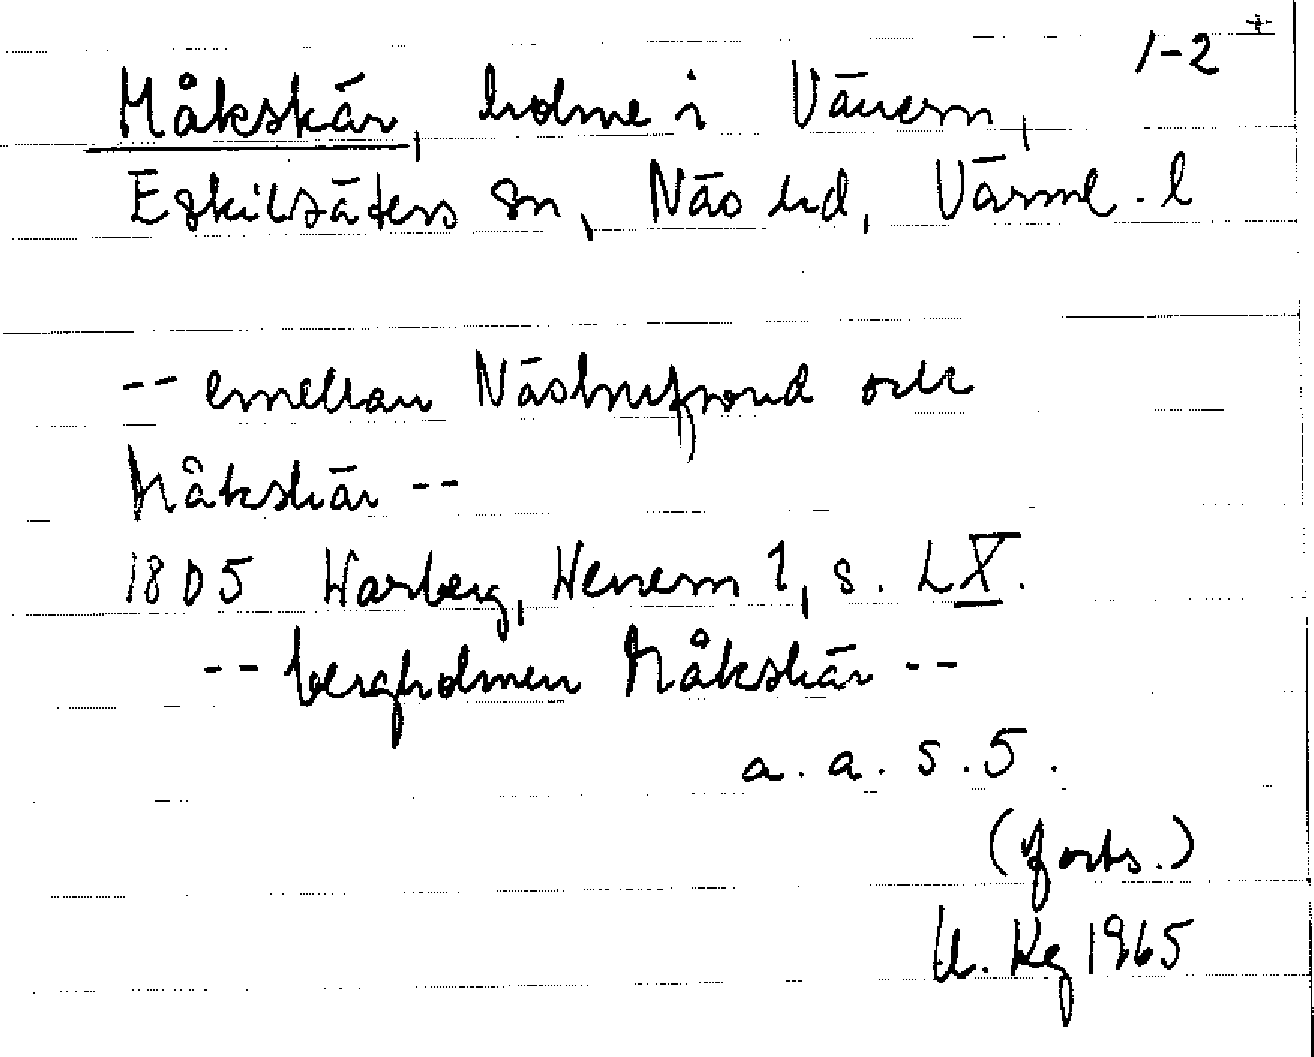 1-2 +
Måkskär, holme i Vänern,
Eskilsäters sn, Näs hd, Värml. l
-- emellan Näshufvud och
Måkskär --
1805 Warberg, Wenern 1, s. LX.
-- bergholmen Måkskär --
a. a. s. 5.
(forts.)
U. Kg 1965